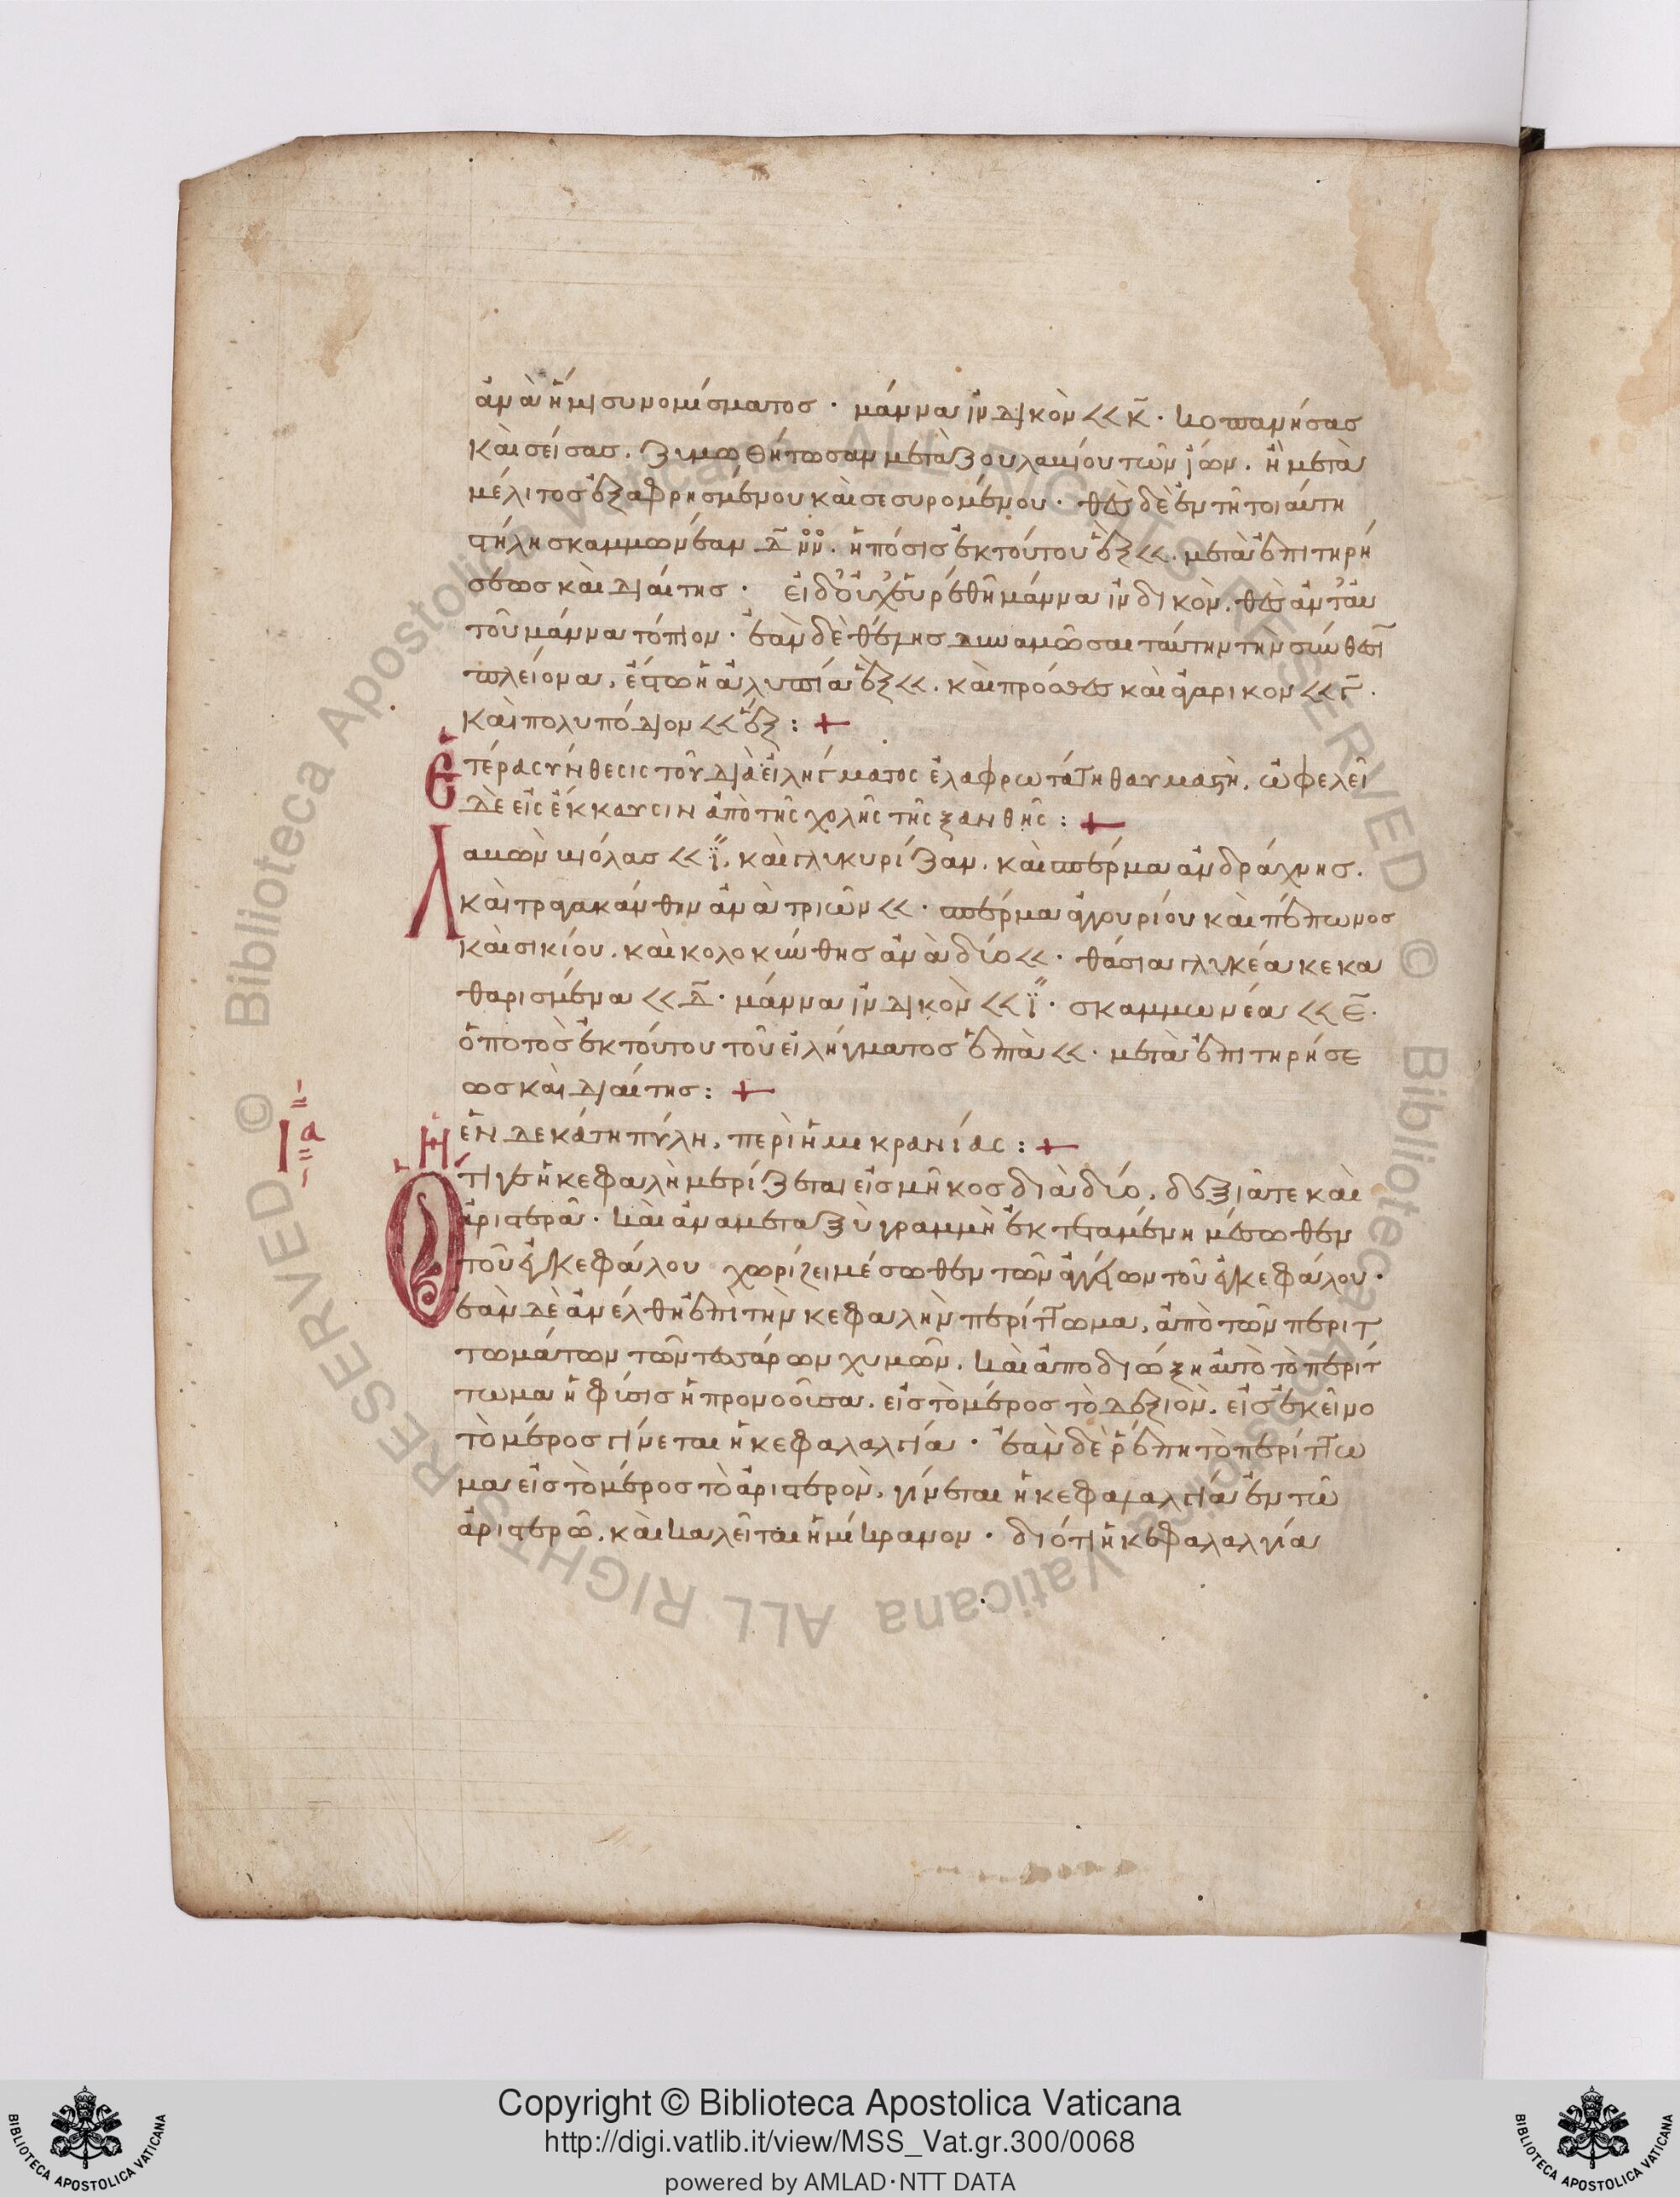 ἀνὰ ἥμισυ νομίσματος · μάννα ἰνδικὸν << κ̄ · κοπανήσας
καὶ σείσας. ζυμωθήτωσαν μετὰ ζουλαπίου τῶν ἴων. ἢ μετὰ
μέλιτος ἐξαφρησμένου καὶ σεσυρομένου · θὲς δὲ ἐν τῆ τοιαύτη
στήλη σκαμμωνέαν δ̄ νν. ἡ πόσις ἐκ τούτου ἓξ <<. μετὰ ἐπιτηρή
σεως καὶ διαίτης · εἰ δ' οὐχ εὑρέθη μάννα ἰνδικὸν. θὲς ἀντ' αὐ
τοῦ μάννα τόπιον · ἐὰν δὲ θέλης δυναμῶσαι ταύτην τὴν σύνθεσι
πλείονα, ἔστω ἡ ἀλυπία ἓξ <<. καὶ πρόσθες καὶ ἀγαρικον << γ̄.
καὶ πολυπόδιον << ἓξ : +
Ἑτέρα σύνθεσις τοῦ διὰ εἰλήγματος ἐλαφρωτάτη θαυμαστὴ, ὠφελεῖ
δὲ εἰς ἔκκαυσιν ἀπὸ τῆς χολῆς τῆς ξανθῆς : +
Λαβὼν βιόλας << ϊ, καὶ γλυκυρίζαν. καὶ σπέρμα ἀνδράχνης.
καὶ τραγακάνθην ἀνὰ τριῶν << · σπέρμα ἀγγουρίου καὶ πέπωνος
καὶ σικίου. καὶ κολοκύνθης ἀνὰ δύο << · θάσια γλυκέα κεκα
θαρισμένα << δ̄ · μάννα ἰνδικὸν << ϊ · σκαμμωνέα << ε̄.
ὁ ποτὸς ἐκ τούτου τοῦ εἰλήγματος ἐπτὰ << · μετὰ ἐπιτηρήσε
ως καὶ διαίτης : +
ια Ἡ ἑνδεκάτη πύλη, περὶ ἡμικρανίας : +
Ὅτι γε ἡ κεφαλὴ μερίζεται εἰς μῆκος διὰ δύο, δεξιᾶ τε καὶ
ἀριστερᾶ · καὶ ἀναμεταξὺ γραμμὴ ἐκτεταμένη μέσωθεν
τοῦ ἐγκεφάλου χωρίζει μέσωθεν τῶν ἀγγείων τοῦ ἐγκεφάλου ·
ἐὰν δὲ ἀνέλθη ἐπὶ τὴν κεφαλὴν περίττωμα, ἀπὸ τῶν περιτ
τωμάτων τῶν τεσσάρων χυμῶν. καὶ ἀποδιώξη αὐτὸ τὸ περίτ
τωμα ἡ φύσις ἡ προνοοῦσα. εἰς τὸ μέρος τὸ δεξιὸν. εἰς ἐκεῖνο
τὸ μέρος γίνεται ἡ κεφαλαλγία · ἐὰν δὲ ῥέπη τὸ περίττω
μα εἰς τὸ μέρος τὸ ἀριστερὸν, γίνεται ἡ κεφαλαλγία ἐν τῶ
ἀριστερῶ. καὶ καλεῖται ἡμίκρανον · διότι ἡ κεφαλαλγία
Copyright © Biblioteca Apostolica Vaticana
http://digi.vatlib.it/view/MSS_Vat.gr.300/0068
powered by AMLAD·NTT DATA
BIBLIOTECA APOSTOLICA VATICANA
BIBLIOTECA APOSTOLICA VATICANA
© Biblioteca Apostolica Vaticana ALL RIGHTS RESERVED © Biblioteca Apostolica Vaticana ALL RIGHTS RESERVED